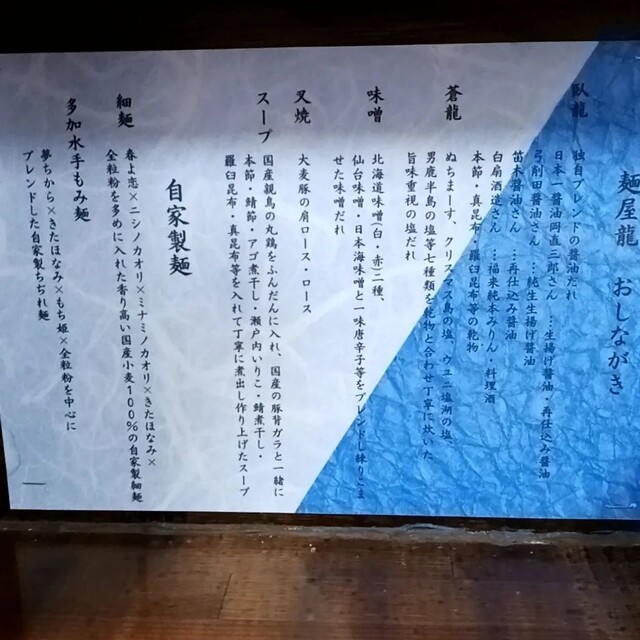 麺屋龍 おしながき
臥龍 独自ブレンドの醤油だれ
日本一醤油岡直三郎さん …生揚げ醤油・再仕込み醤油
弓削田醤油さん …純生生揚げ醤油
笛木醤油さん …再仕込み醤油
白扇酒造さん …福来純本みりん・料理酒
本節・真昆布・羅臼昆布等の乾物
蒼龍 ぬちまーす、クリスマス島の塩、ウユニ塩湖の塩、
男鹿半島の塩等七種類を乾物と合わせ丁寧に炊いた
旨味重視の塩だれ
味噌 北海道味噌(白・赤)二種、
仙台味噌・日本海味噌と一味唐辛子等をブレンドし練りこま
せた味噌だれ
叉焼 大麦豚の肩ロース・ロース
スープ 国産親鳥の丸鶏をふんだんに入れ、国産の豚背ガラと一緒に
本節・鯖節・アゴ煮干し・瀬戸内いりこ・鯖煮干し・
羅臼昆布・真昆布等を入れて丁寧に煮出し作り上げたスープ
自家製麺
細麺 春よ恋×ニシノカオリ×ミナミノカオリ×きたほなみ×
全粒粉を多めに入れた香り高い国産小麦100%の自家製細麺
多加水手もみ麺
夢ちから×きたほなみ×もち姫×全粒粉を中心に
ブレンドした自家製ちぢれ麺